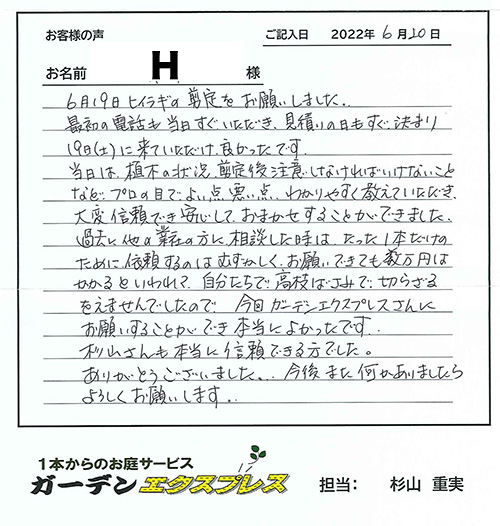 お客様の声
ご記入日 2022年6月20日
お名前 H 様
6月19日ヒイラギの剪定をお願いしました.
最初の電話も当日すぐいただき、見積りの日もすぐ決まり
19日(土)に来ていただけ良かったです.
当日は、植木の状況、剪定後注意しなければいけないこと
など、プロの目でよい点悪い点、わかりやすく教えていただき、
大変信頼でき安心して、おまかせすることができました.
過去に他の業社の方に相談した時は、たった1本だけの
ために依頼するのはむずかしく、お願いできても数万円は
かかるといわれて、自分たちで高枝ばさみで切らざる
をえませんでしたので、今回ガーデンエクスプレスさんに
お願いすることができ本当によかったです.
杉山さんも本当に信頼できる方でした。
ありがとうございました.. 今後また何かありましたら
よろしくお願いします.
1本からのお庭サービス
ガーデンエクスプレス
担当: 杉山 重実